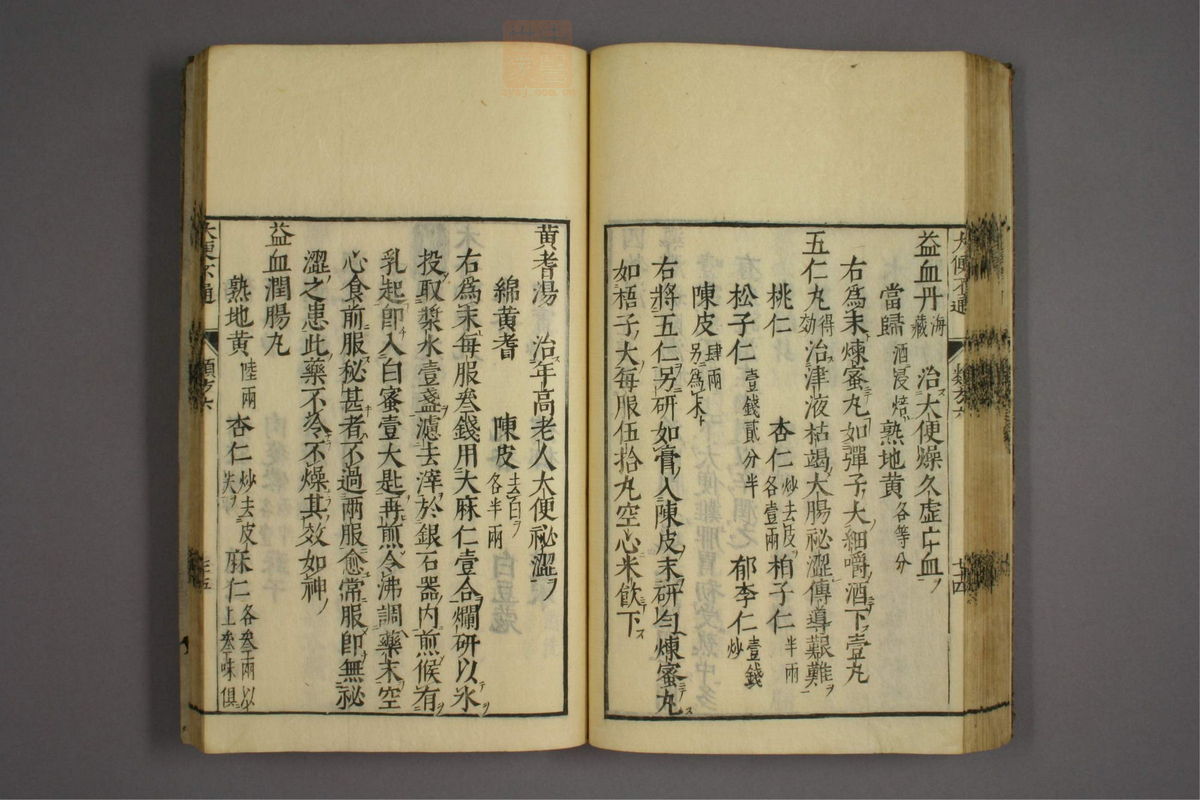 大便不通 類方六 七十四
益血丹 海藏 治大便燥久虛亡血
當歸 酒浸焙 熟地黄 各等分
右爲末煉蜜丸如彈子大細嚼酒下壹丸
五仁丸 得効 治津液枯竭大腸祕澀傳導艱難
桃仁 杏仁 炒去皮各壹兩 柏子仁 半兩
松子仁 壹錢貳分半 郁李仁 壹錢炒
陳皮 肆兩另爲末
右將五仁另研如膏入陳皮末研勻煉蜜丸
如梧子大每服伍拾丸空心米飮下
黄耆湯 治年高老人大便祕澀
綿黄耆 陳皮 去白各半兩
右爲末每服叄錢用大麻仁壹合爛研以水
投取漿水壹盞濾去滓於銀石器内煎候有
乳起即入白蜜壹大匙再煎令沸調藥末空
心食前服秘甚者不過兩服愈常服即無祕
澀之患此藥不冷不燥其效如神
益血潤腸丸
熟地黄 陸兩 杏仁 炒去皮尖 麻仁 各叄兩以上叄味俱
大便不通 類方六 七十五